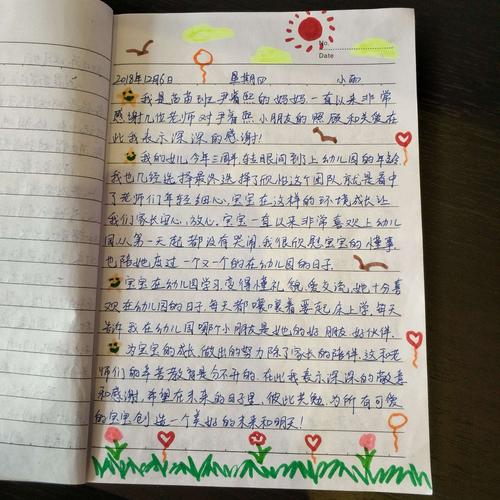 No.
Date
2018年12月6日 星期四 小雨
我是苗苗班尹睿熙的妈妈,一直以来非常
感谢几位老师对尹睿熙小朋友的照顾和关爱在
此我表示深深的感谢!
我的女儿今年三周半,转眼间到了上幼儿园的年龄
我也几经选择最终选择了欣怡这个团队,就是看中
了老师们年轻细心,宝宝在这样的环境成长让
我们家长安心、放心,宝宝一直以来非常喜欢上幼儿
园从第一天起都没有哭闹,我很欣慰宝宝的懂事
也陪她度过一个又一个的在幼儿园的日子.
宝宝在幼儿园学习变得懂礼貌,爱交流,她十分喜
欢在幼儿园的日子,每天都嚷嚷着要起床上学,每天
告诉我在幼儿园哪个小朋友是她的好朋友好伙伴,
为宝宝的成长,做出的努力除了家长的陪伴,这和老
师们的辛苦教育是分不开的,在此我表示深深的敬意
和感谢,希望在未来的日子里,彼此共勉,为所有可爱
的宝宝创造一个美好的未来和明天!